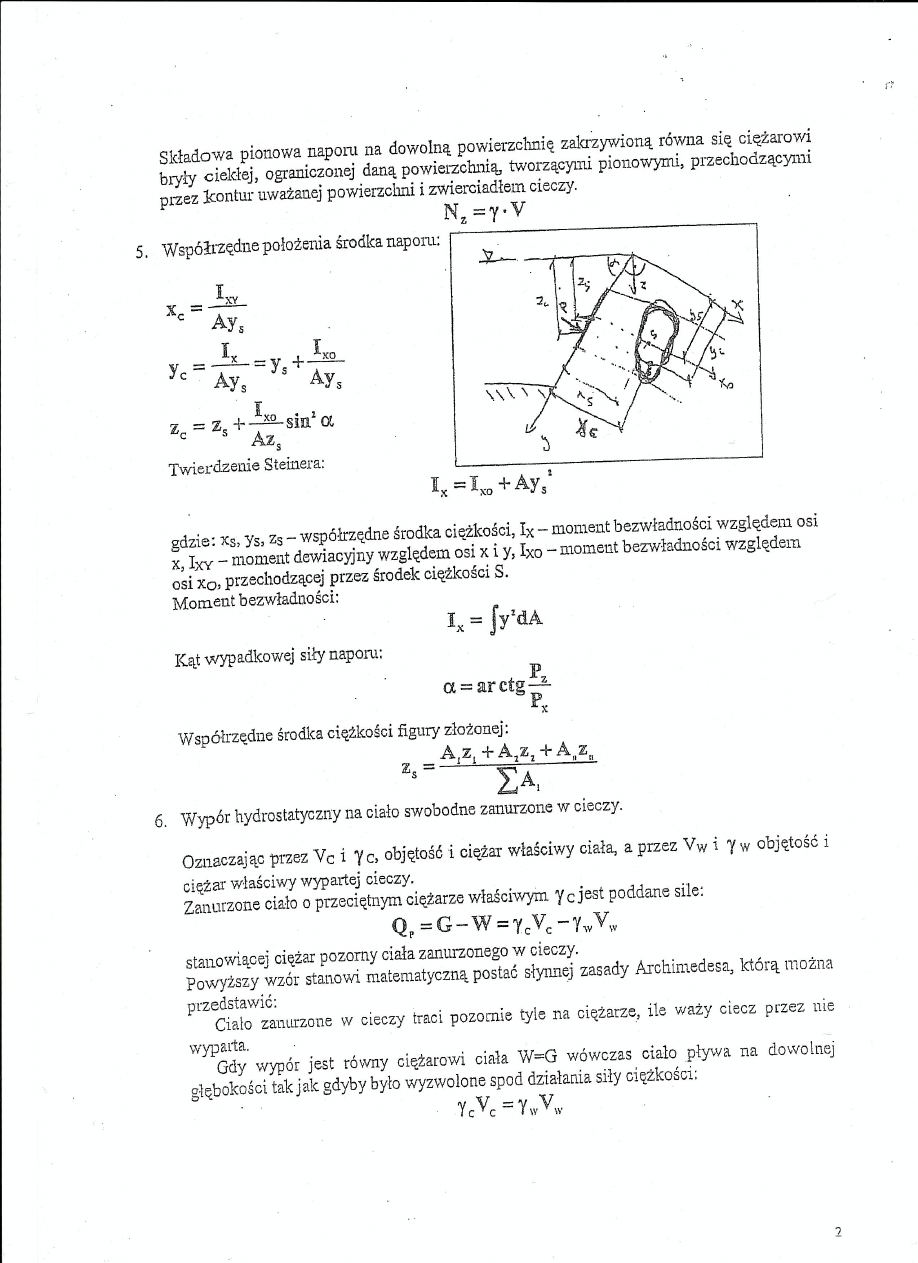 Składowa pionowa naporu na dowolną powierzchnię zakrzywioną równa się ciężarowi
bryły ciekłej, ograniczonej daną powierzchnią, tworzącymi pionowymi, przechodzącymi
przez kontur uważanej powierzchni i zwierciadłem cieczy.
N_z = γ · V
5. Współrzędne położenia środka naporu:
x_c = I_XY / Ay_s
y_c = I_x / Ay_s = y_s + I_xo / Ay_s
z_c = z_s + I_xo / Az_s sin² α
Twierdzenie Steinera:
α
z_s
z_c
P
z
x
y_s
y_c
x_o
S
x_s
x_c
y
I_x = I_xo + Ay_s²
gdzie: x_S, y_S, z_S – współrzędne środka ciężkości, I_X – moment bezwładności względem osi
x, I_XY – moment dewiacyjny względem osi x i y, I_XO – moment bezwładności względem
osi x_O, przechodzącej przez środek ciężkości S.
Moment bezwładności:
I_x = ∫y²dA
Kąt wypadkowej siły naporu:
α = arctg P_z / P_x
Współrzędne środka ciężkości figury złożonej:
z_s = A₁z₁ + A₂z₂ + A_n z_n / ∑A₁
6. Wypór hydrostatyczny na ciało swobodne zanurzone w cieczy.
Oznaczając przez V_C i γ_C, objętość i ciężar właściwy ciała, a przez V_W i γ_W objętość i
ciężar właściwy wypartej cieczy.
Zanurzone ciało o przeciętnym ciężarze właściwym γ_C jest poddane sile:
Q_P = G – W = γ_C V_C – γ_W V_W
stanowiącej ciężar pozorny ciała zanurzonego w cieczy.
Powyższy wzór stanowi matematyczną postać słynnej zasady Archimedesa, którą można
przedstawić:
Ciało zanurzone w cieczy traci pozornie tyle na ciężarze, ile waży ciecz przez nie
wyparta.
Gdy wypór jest równy ciężarowi ciała W=G wówczas ciało pływa na dowolnej
głębokości tak jak gdyby było wyzwolone spod działania siły ciężkości:
γ_C V_C = γ_W V_W
2